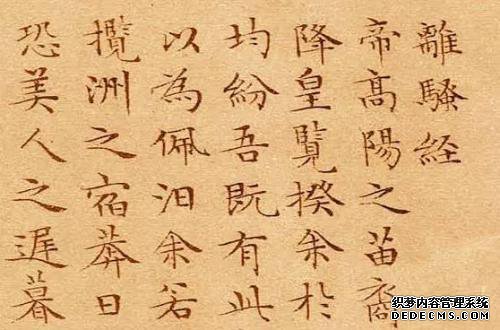 離騷経
帝髙陽之苗裔
降皇覽揆余於
均紛吾既有此
以為佩汨余若
攬洲之宿莽日
恐美人之遲暮
织梦内容管理系统
DEDECMS.COM